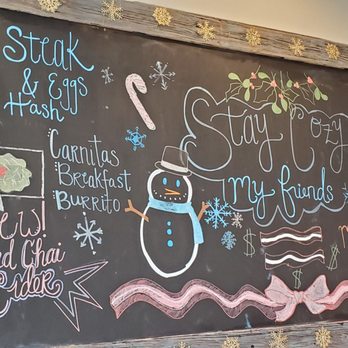 Steak
& Eggs
Hash
Carnitas
Breakfast
Burrito
Stay Cozy
My friends
Chai
Cider
$
$
$